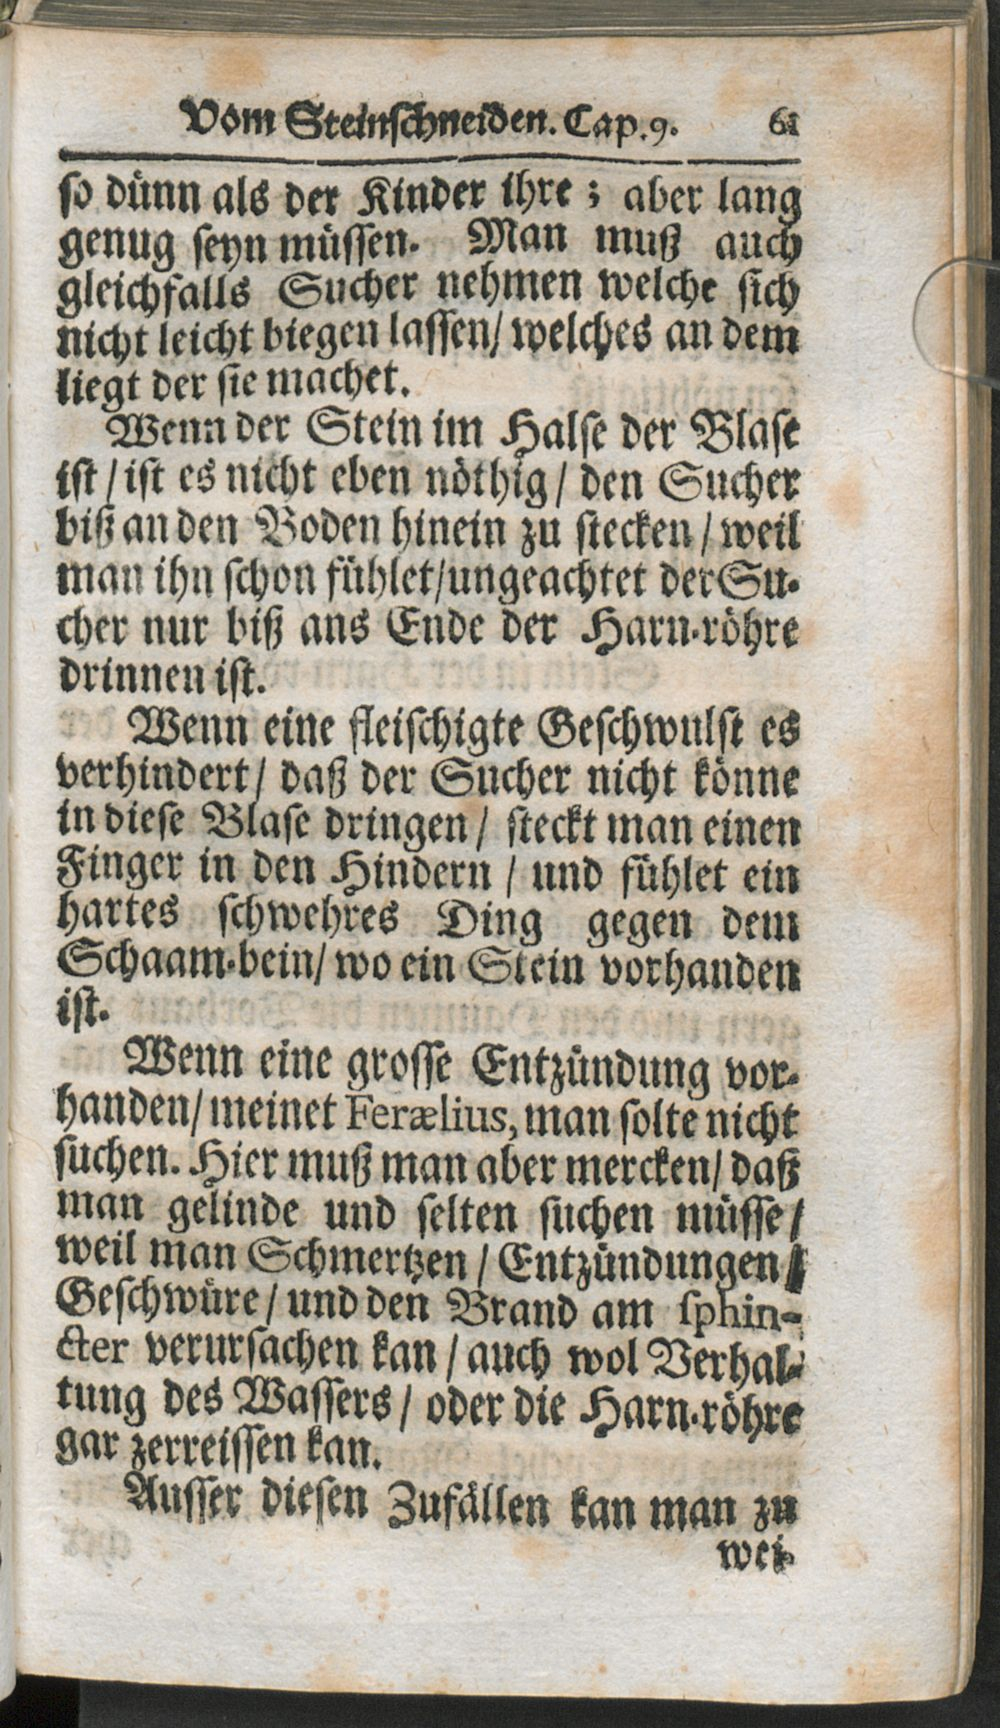 Vom Steinschneiden. Cap. 9. 61
so dünn als der Kinder ihre; aber lang
genug seyn müssen. Man muß auch
gleichfalls Sucher nehmen welche sich
nicht leicht biegen lassen/ welches an dem
liegt der sie machet.
Wenn der Stein im Halse der Blase
ist / ist es nicht eben nöthig / den Sucher
biß an den Boden hinein zu stecken / weil
man ihn schon fühlet/ungeachtet der Su-
cher nur biß ans Ende der Harn-röhre
drinnen ist.
Wenn eine fleischigte Geschwulst es
verhindert / daß der Sucher nicht könne
in diese Blase dringen / steckt man einen
Finger in den Hindern / und fühlet ein
hartes schwehres Ding gegen dem
Schaam-bein/ wo ein Stein vorhanden
ist.
Wenn eine grosse Entzündung vor-
handen/ meinet Ferælius, man solte nicht
suchen. Hier muß man aber mercken/ daß
man gelinde und selten suchen müsse /
weil man Schmertzen / Entzündungen /
Geschwüre / und den Brand am sphin-
cter verursachen kan / auch wol Verhal-
tung des Wassers / oder die Harn-röhre
gar zerreissen kan.
Ausser diesen Zufällen kan man zu
wei-